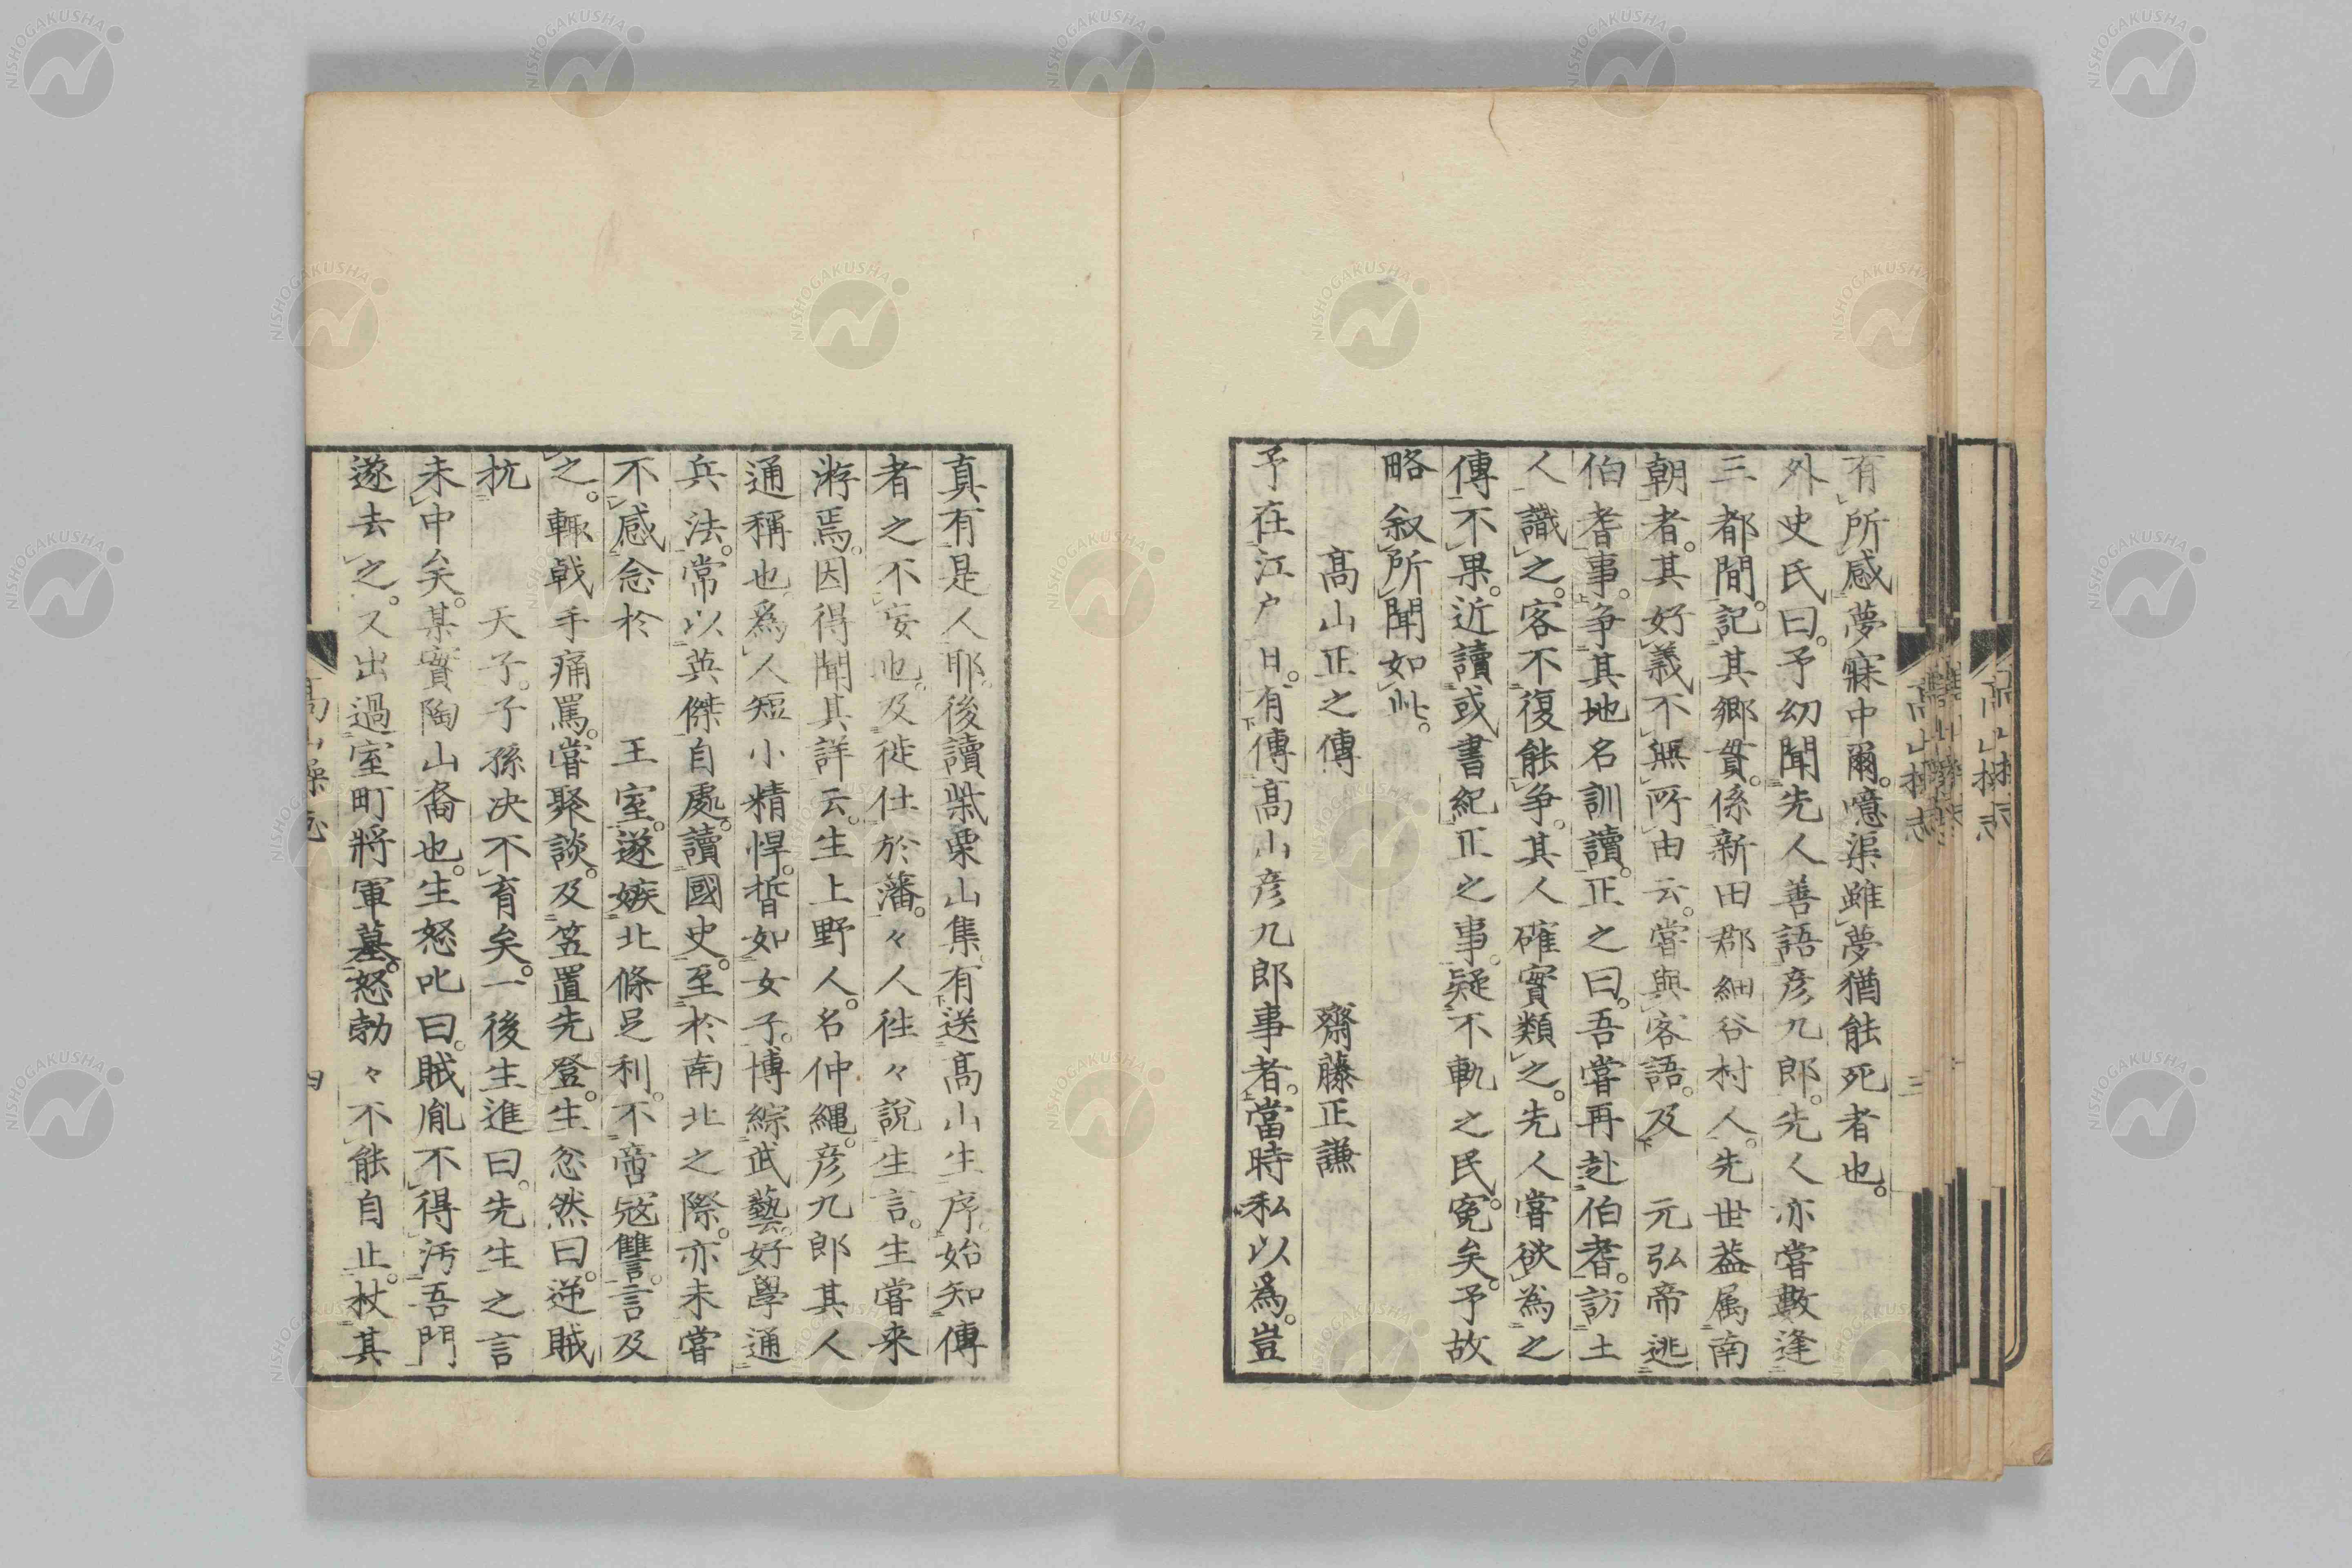 有所感夢寐中爾。噫渠雖夢猶能死者也。
外史氏曰。予幼聞先人善語彦九郎。先人亦嘗數逢
三都間。記其鄉貫。係新田郡細谷村人。先世葢属南
朝者。其好義不無所由云。嘗與客語。及　元弘帝逃
伯耆事。争其地名訓讀。正之曰。吾嘗再赴伯耆。訪土
人識之。客不復能争。其人確實類之。先人嘗欲為之
傳不果。近讀或書紀正之事。疑不軌之民。寃矣。予故
略叙所聞如此。
髙山正之傳　齋藤正謙
予在江戸日。有傳髙山彦九郎事者。當時私以爲。豈
真有是人耶。後讀柴栗山集。有送髙山生序。始知傳
者之不妄也。及徙仕於藩。々人往々說生言。生嘗来
游焉。因得聞其詳云。生上野人。名仲縄。彦九郎其人
通稱也。爲人短小精悍。晳如女子。博綜武藝。好學通
兵法。常以英傑自處。讀國史。至於南北之際。亦未嘗
不感念於　王室。遂嫉北條足利。不啻寇讐。言及
之。輙戟手痛罵。嘗聚談。及笠置先登。生忽然曰。逆賊
抗　天子。子孫决不育矣。一後生進曰。先生之言
未中矣。某實陶山裔也。生怒叱曰。賊胤不得汚吾門
遂去之。又出過室町將軍墓。怒勃々不能自止。杖其
髙山操志
三
四
NISHOGAKUSHA